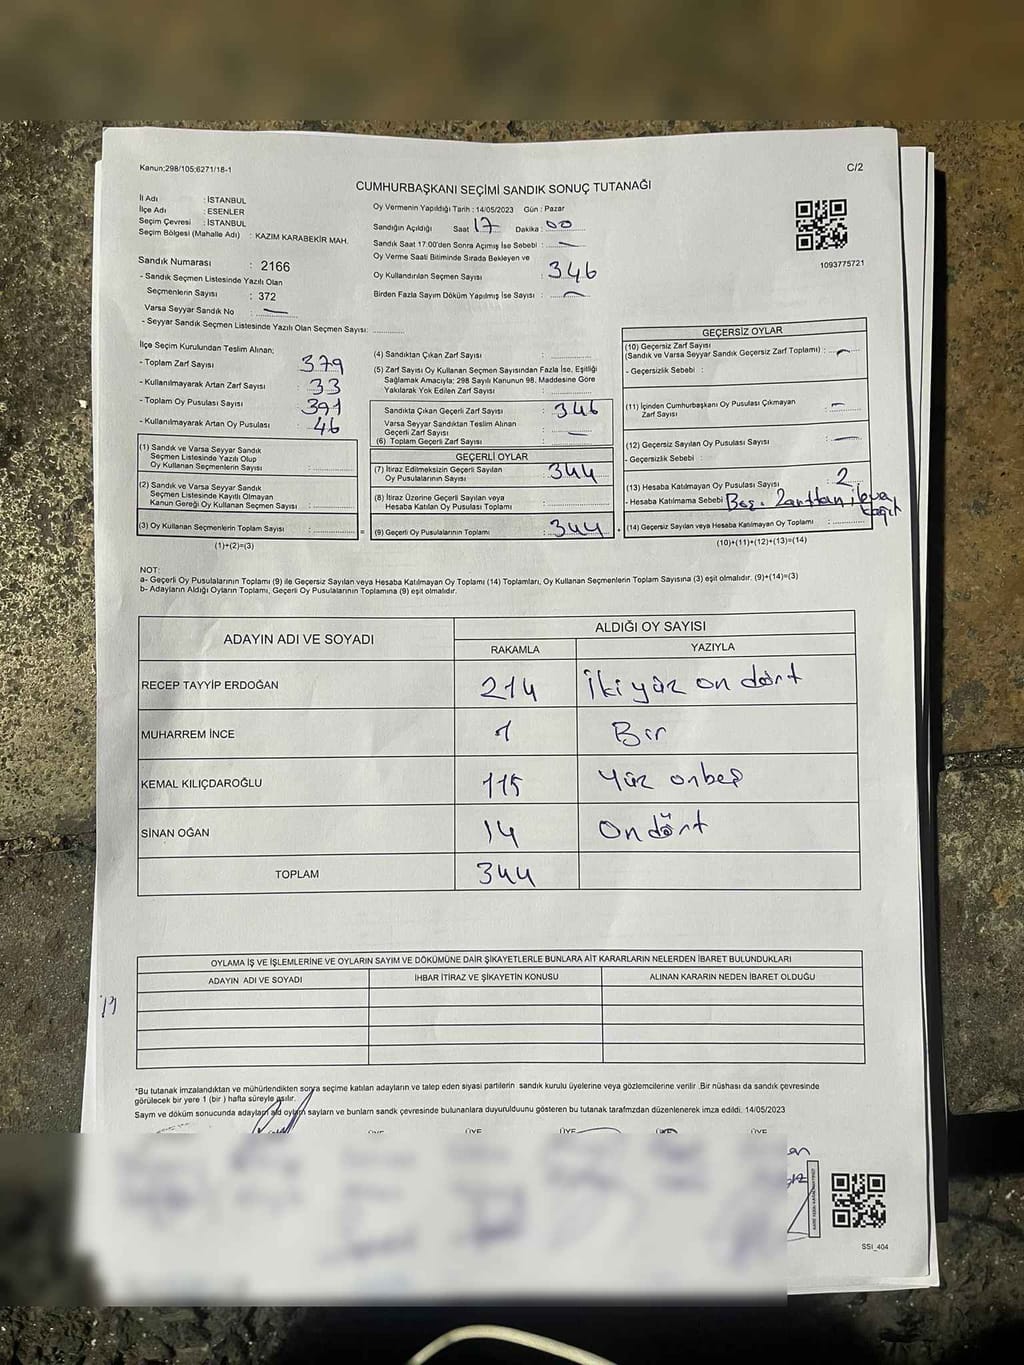 Kanun;298/105;6271/18-1
C/2
CUMHURBAŞKANI SEÇİMİ SANDIK SONUÇ TUTANAĞI
İl Adı : İSTANBUL
İlçe Adı : ESENLER
Seçim Çevresi : İSTANBUL
Seçim Bölgesi (Mahalle Adı) : KAZIM KARABEKİR MAH.
Sandık Numarası : 2166
- Sandık Seçmen Listesinde Yazılı Olan
Seçmenlerin Sayısı : 372
Varsa Seyyar Sandık No : —
- Seyyar Sandık Seçmen Listesinde Yazılı Olan Seçmen Sayısı:
Oy Vermenin Yapıldığı Tarih : 14/05/2023 Gün : Pazar
Sandığın Açıldığı Saat 17 Dakika : 00
Sandık Saat 17:00'den Sonra Açımış İse Sebebi : —
Oy Verme Saati Bitiminde Sırada Bekleyen ve
Oy Kullandırılan Seçmen Sayısı : 346
Birden Fazla Sayım Döküm Yapılmış İse Sayısı : —
1093775721
İlçe Seçim Kurulundan Teslim Alınan;
- Toplam Zarf Sayısı : 379
- Kullanılmayarak Artan Zarf Sayısı : 33
- Toplam Oy Pusulası Sayısı : 391
- Kullanılmayarak Artan Oy Pusulası : 46
(1) Sandık ve Varsa Seyyar Sandık
Seçmen Listesinde Yazılı Olup
Oy Kullanan Seçmenlerin Sayısı :
(2) Sandık ve Varsa Seyyar Sandık
Seçmen Listesinde Kayıtlı Olmayan
Kanun Gereği Oy Kullanan Seçmen Sayısı :
(3) Oy Kullanan Seçmenlerin Toplam Sayısı : =
(1)+(2)=(3)
(4) Sandıktan Çıkan Zarf Sayısı :
(5) Zarf Sayısı Oy Kullanan Seçmen Sayısından Fazla İse, Eşitliği
Sağlamak Amacıyla; 298 Sayılı Kanunun 98. Maddesine Göre
Yakılarak Yok Edilen Zarf Sayısı :
Sandıkta Çıkan Geçerli Zarf Sayısı : 346
Varsa Seyyar Sandıktan Teslim Alınan
Geçerli Zarf Sayısı : —
(6) Toplam Geçerli Zarf Sayısı :
GEÇERLİ OYLAR
(7) İtiraz Edilmeksizin Geçerli Sayılan
Oy Pusulasının Sayısı : 344
(8) İtiraz Üzerine Geçerli Sayılan veya
Hesaba Katılan Oy Pusulası Toplamı :
(9) Geçerli Oy Pusulalarının Toplamı : 344
GEÇERSİZ OYLAR
(10) Geçersiz Zarf Sayısı
(Sandık ve Varsa Seyyar Sandık Geçersiz Zarf Toplamı) : —
- Geçersizlik Sebebi :
(11) İçinden Cumhurbaşkanı Oy Pusulası Çıkmayan
Zarf Sayısı : —
(12) Geçersiz Sayılan Oy Pusulası Sayısı : —
- Geçersizlik Sebebi :
(13) Hesaba Katılmayan Oy Pusulası Sayısı : 2
- Hesaba Katılmama Sebebi : Boş.
(14) Geçersiz Sayılan veya Hesaba Katılmayan Oy Toplamı :
(10)+(11)+(12)+(13)=(14)
NOT:
a- Geçerli Oy Pusulalarının Toplamı (9) ile Geçersiz Sayılan veya Hesaba Katılmayan Oy Toplamı (14) Toplamları, Oy Kullanan Seçmenlerin Toplam Sayısına (3) eşit olmalıdır. (9)+(14)=(3)
b- Adayların Aldığı Oyların Toplamı, Geçerli Oy Pusulalarının Toplamına (9) eşit olmalıdır.
ADAYIN ADI VE SOYADI
ALDIĞI OY SAYISI
RAKAMLA YAZIYLA
RECEP TAYYİP ERDOĞAN 214 İki yüz on dört
MUHARREM İNCE 1 Bir
KEMAL KILIÇDAROĞLU 115 Yüz onbeş
SİNAN OĞAN 14 On dört
TOPLAM 344
OYLAMA İŞ VE İŞLEMLERİNE VE OYLARIN SAYIM VE DÖKÜMÜNE DAİR ŞİKAYETLERLE BUNLARA AİT KARARLARIN NELERDEN İBARET BULUNDUKLARI
ADAYIN ADI VE SOYADI İHBAR İTİRAZ VE ŞİKAYETİN KONUSU ALINAN KARARIN NEDEN İBARET OLDUĞU
*Bu tutanak imzalandıktan ve mühürlendikten sonra seçime katılan adayların ve talep eden siyasi partilerin sandık kurulu üyelerine veya gözlemcilerine verilir .Bir nüshası da sandık çevresinde
görülecek bir yere 1 (bir ) hafta süreyle asılır.
Sayım ve döküm sonucunda adayların ald oyların sayların ve bunların sandk çevresinde bulunanlara duyurulduunu gösteren bu tutanak tarafmzdan düzenlenerek imza edildi. 14/05/2023
ÜYE ÜYE ÜYE ÜYE ÜYE
SSI_404